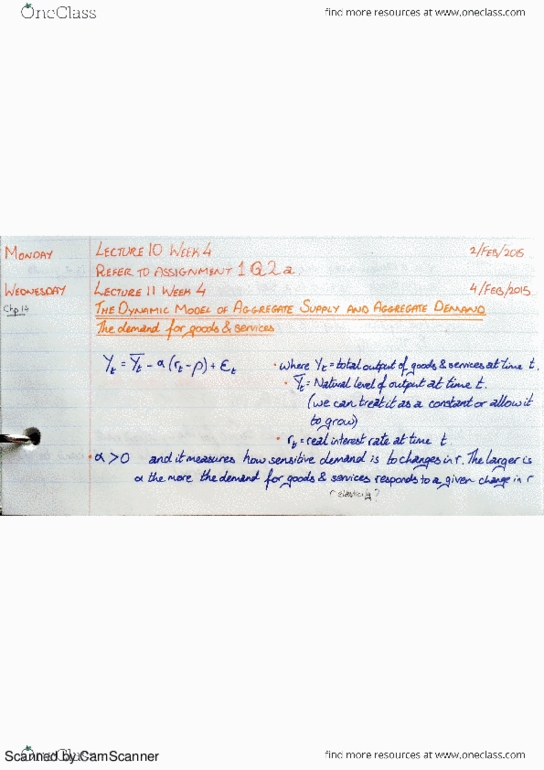 OneClass
find more resources at www.oneclass.com
MONDAY
LECTURE 10 WEEK 4
2/FEB/2015
REFER TO ASSIGNMENT 1 Q2a
WEDNESDAY
LECTURE 11 WEEK 4
4/FEB/2015
Chp 14
THE DYNAMIC MODEL OF AGGREGATE SUPPLY AND AGGREGATE DEMAND
The demand for goods & services
Yₜ = Ȳₜ - α(rₜ-ρ) + εₜ
• where Yₜ = total output of goods & services at time t.
• Ȳₜ = Natural level of output at time t.
(we can treat it as a constant or allow it
to grow)
• rₜ = real interest rate at time t.
• α > 0 and it measures how sensitive demand is to changes in r. The larger is
α the more the demand for goods & services responds to a given change in r
elasticity?
Scanned by CamScanner
OneClass
find more resources at www.oneclass.com